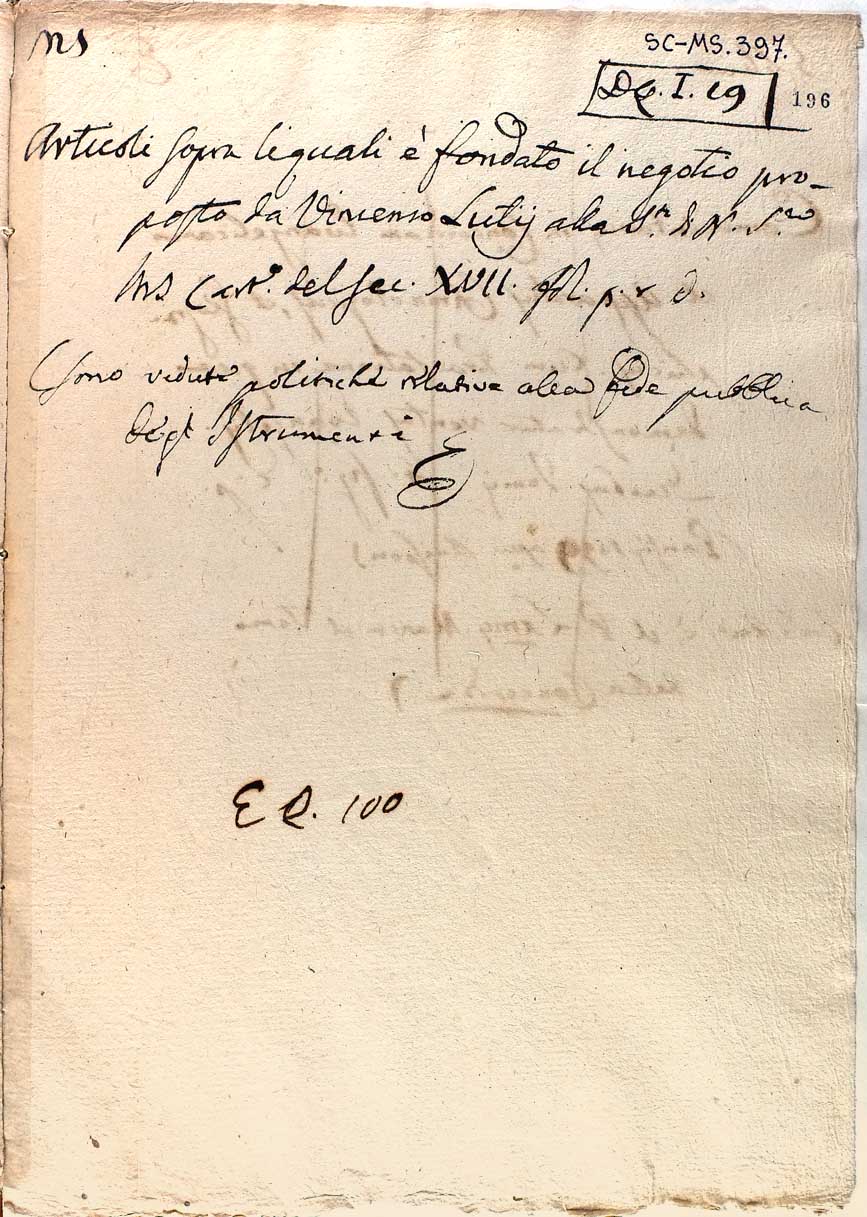 MS
SC-MS. 397.
DC. I. 19
196
Articoli sopra li quali è fondato il negotio pro-
posto da Vincenzo Lutij alla S.tà di N. S.re
MS cart.º del sec. XVII. fol. p. r. d.
(sono vedute politiche relative alla fede pubblica
degl' Istrumenti
E. 100